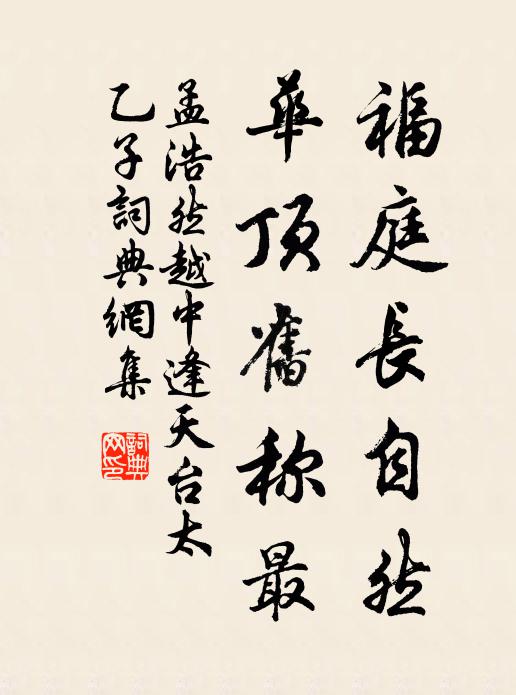 福庭長自然
華頂舊称最
孟浩然越中逢天台太
乙子詞典網集
詞典網印